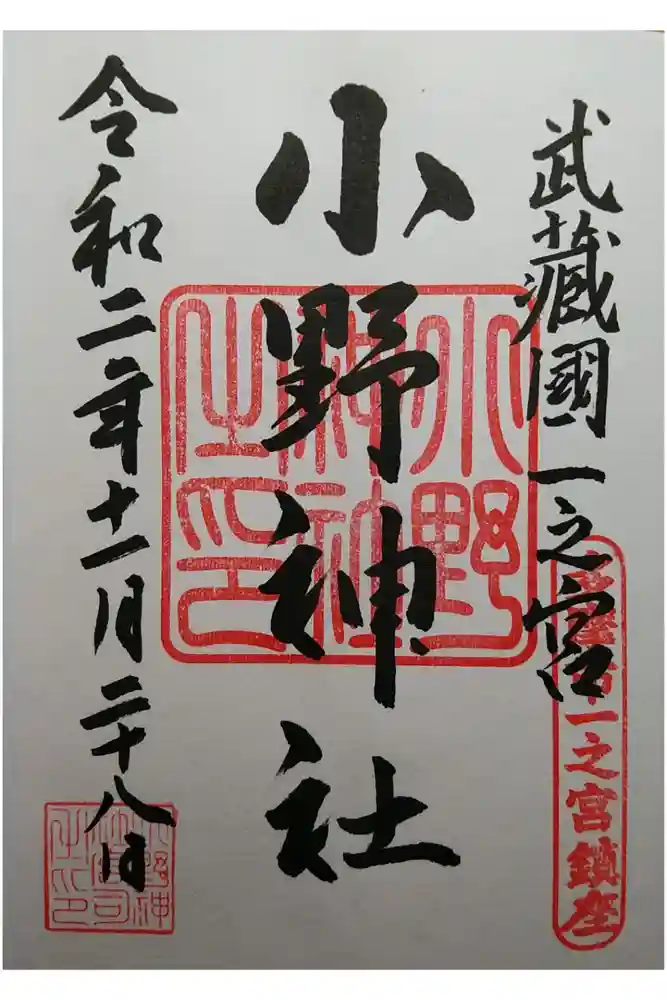 武藏國一之宮
多摩市一之宮鎮座
小野神社
小野
神社
之印
令和二年十一月二十八日
小野神
社宮司
之印